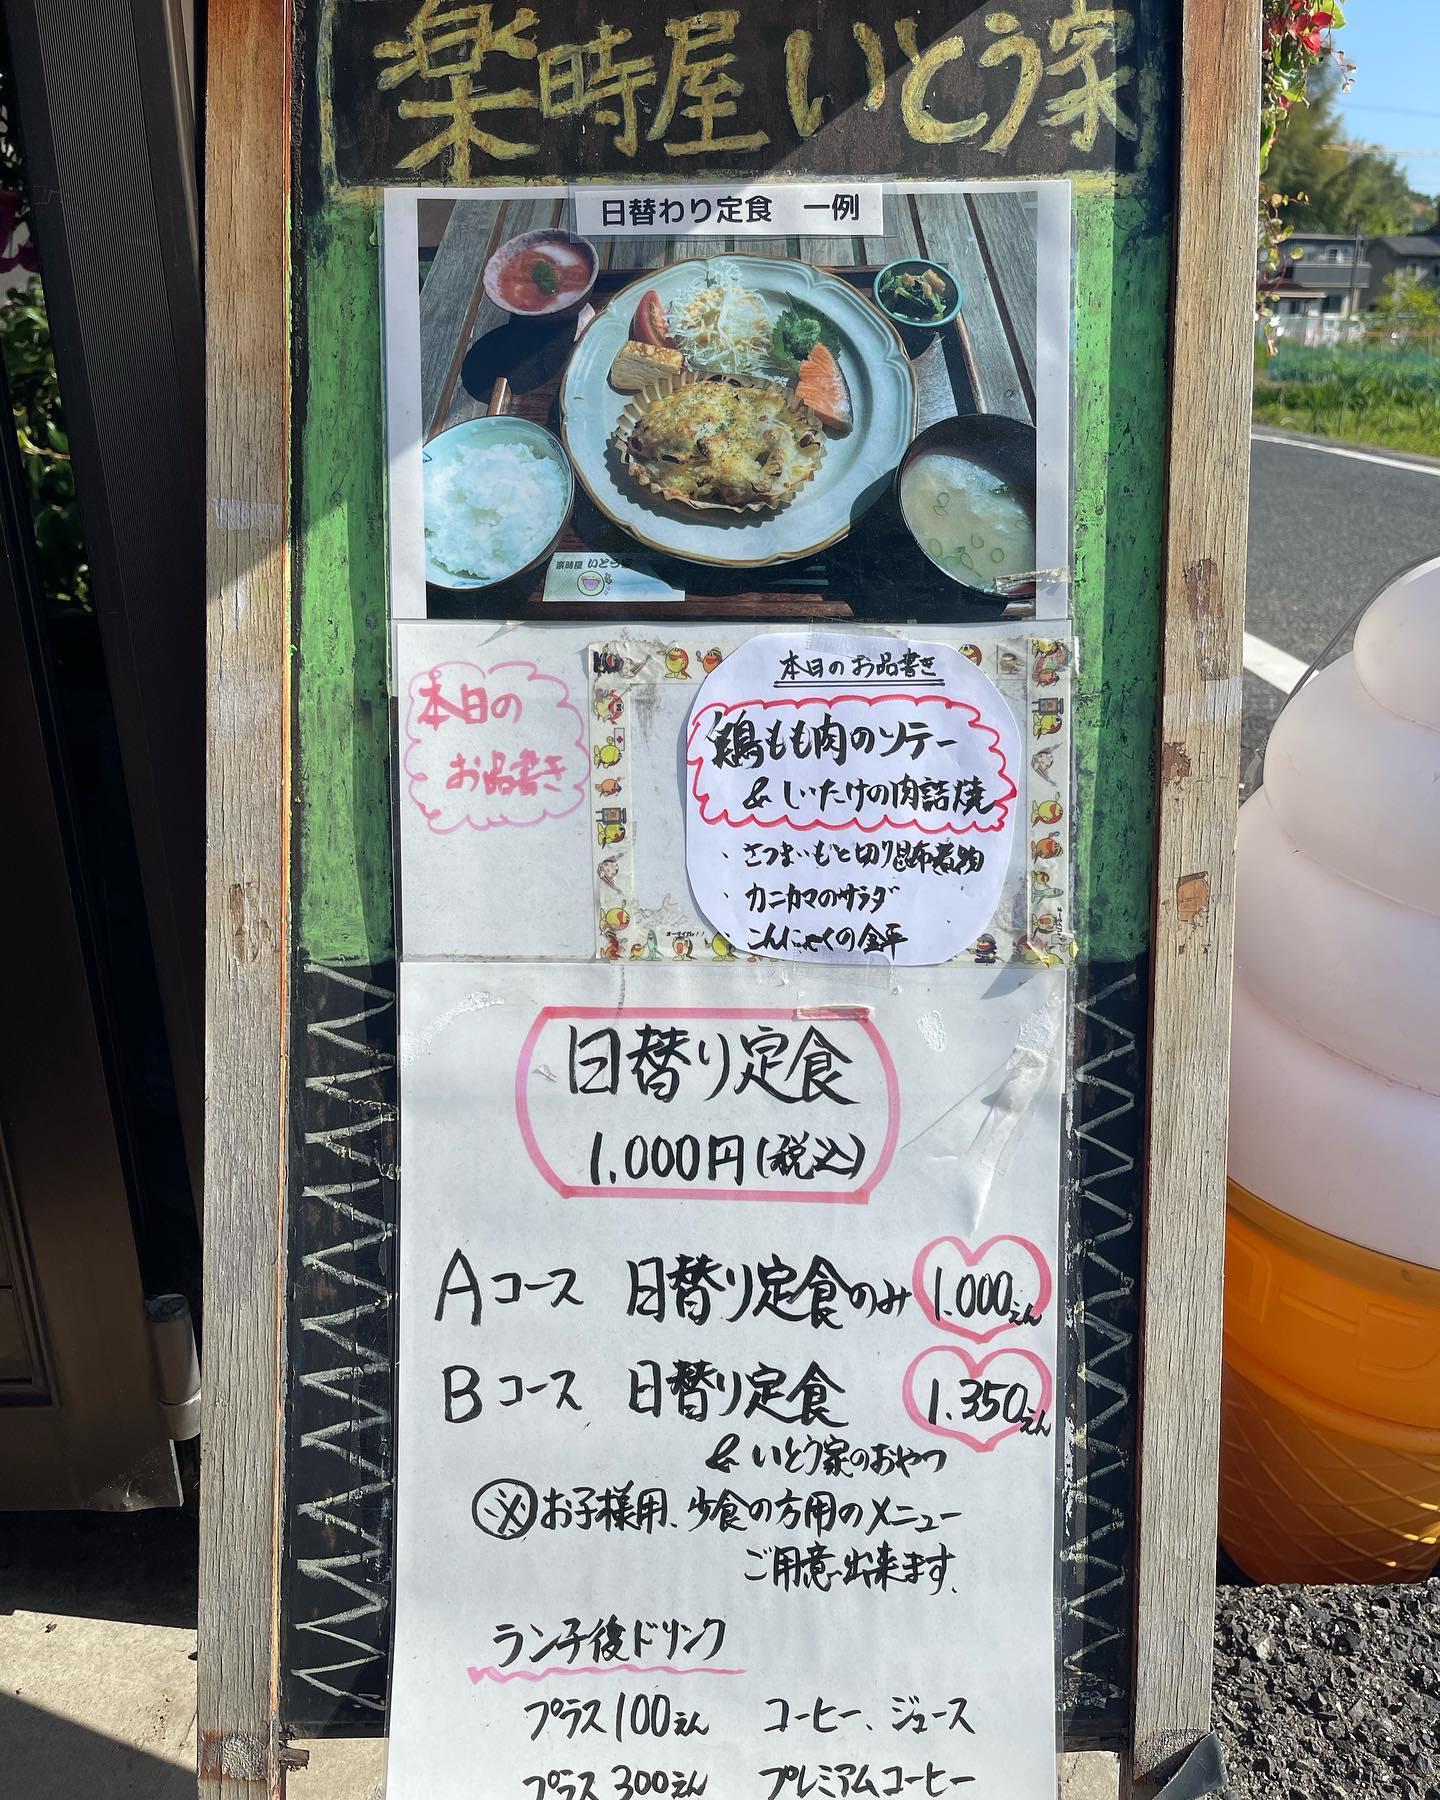 楽時屋 いとう家
日替わり定食 一例
楽時屋 いとう家
本日の
お品書き
本日のお品書き
鶏もも肉のソテー
& しいたけの肉詰焼
・さつまいもと切り昆布煮物
・カニカマのサラダ
・こんにゃくの金平
日替り定食
1.000円(税込)
Aコース 日替り定食のみ 1.000えん
Bコース 日替り定食 1.350えん
& いとう家のおやつ
※お子様用、少食の方用のメニュー
ご用意出来ます。
ランチ後ドリンク
プラス100えん コーヒー、ジュース
プラス300えん プレミアムコーヒー